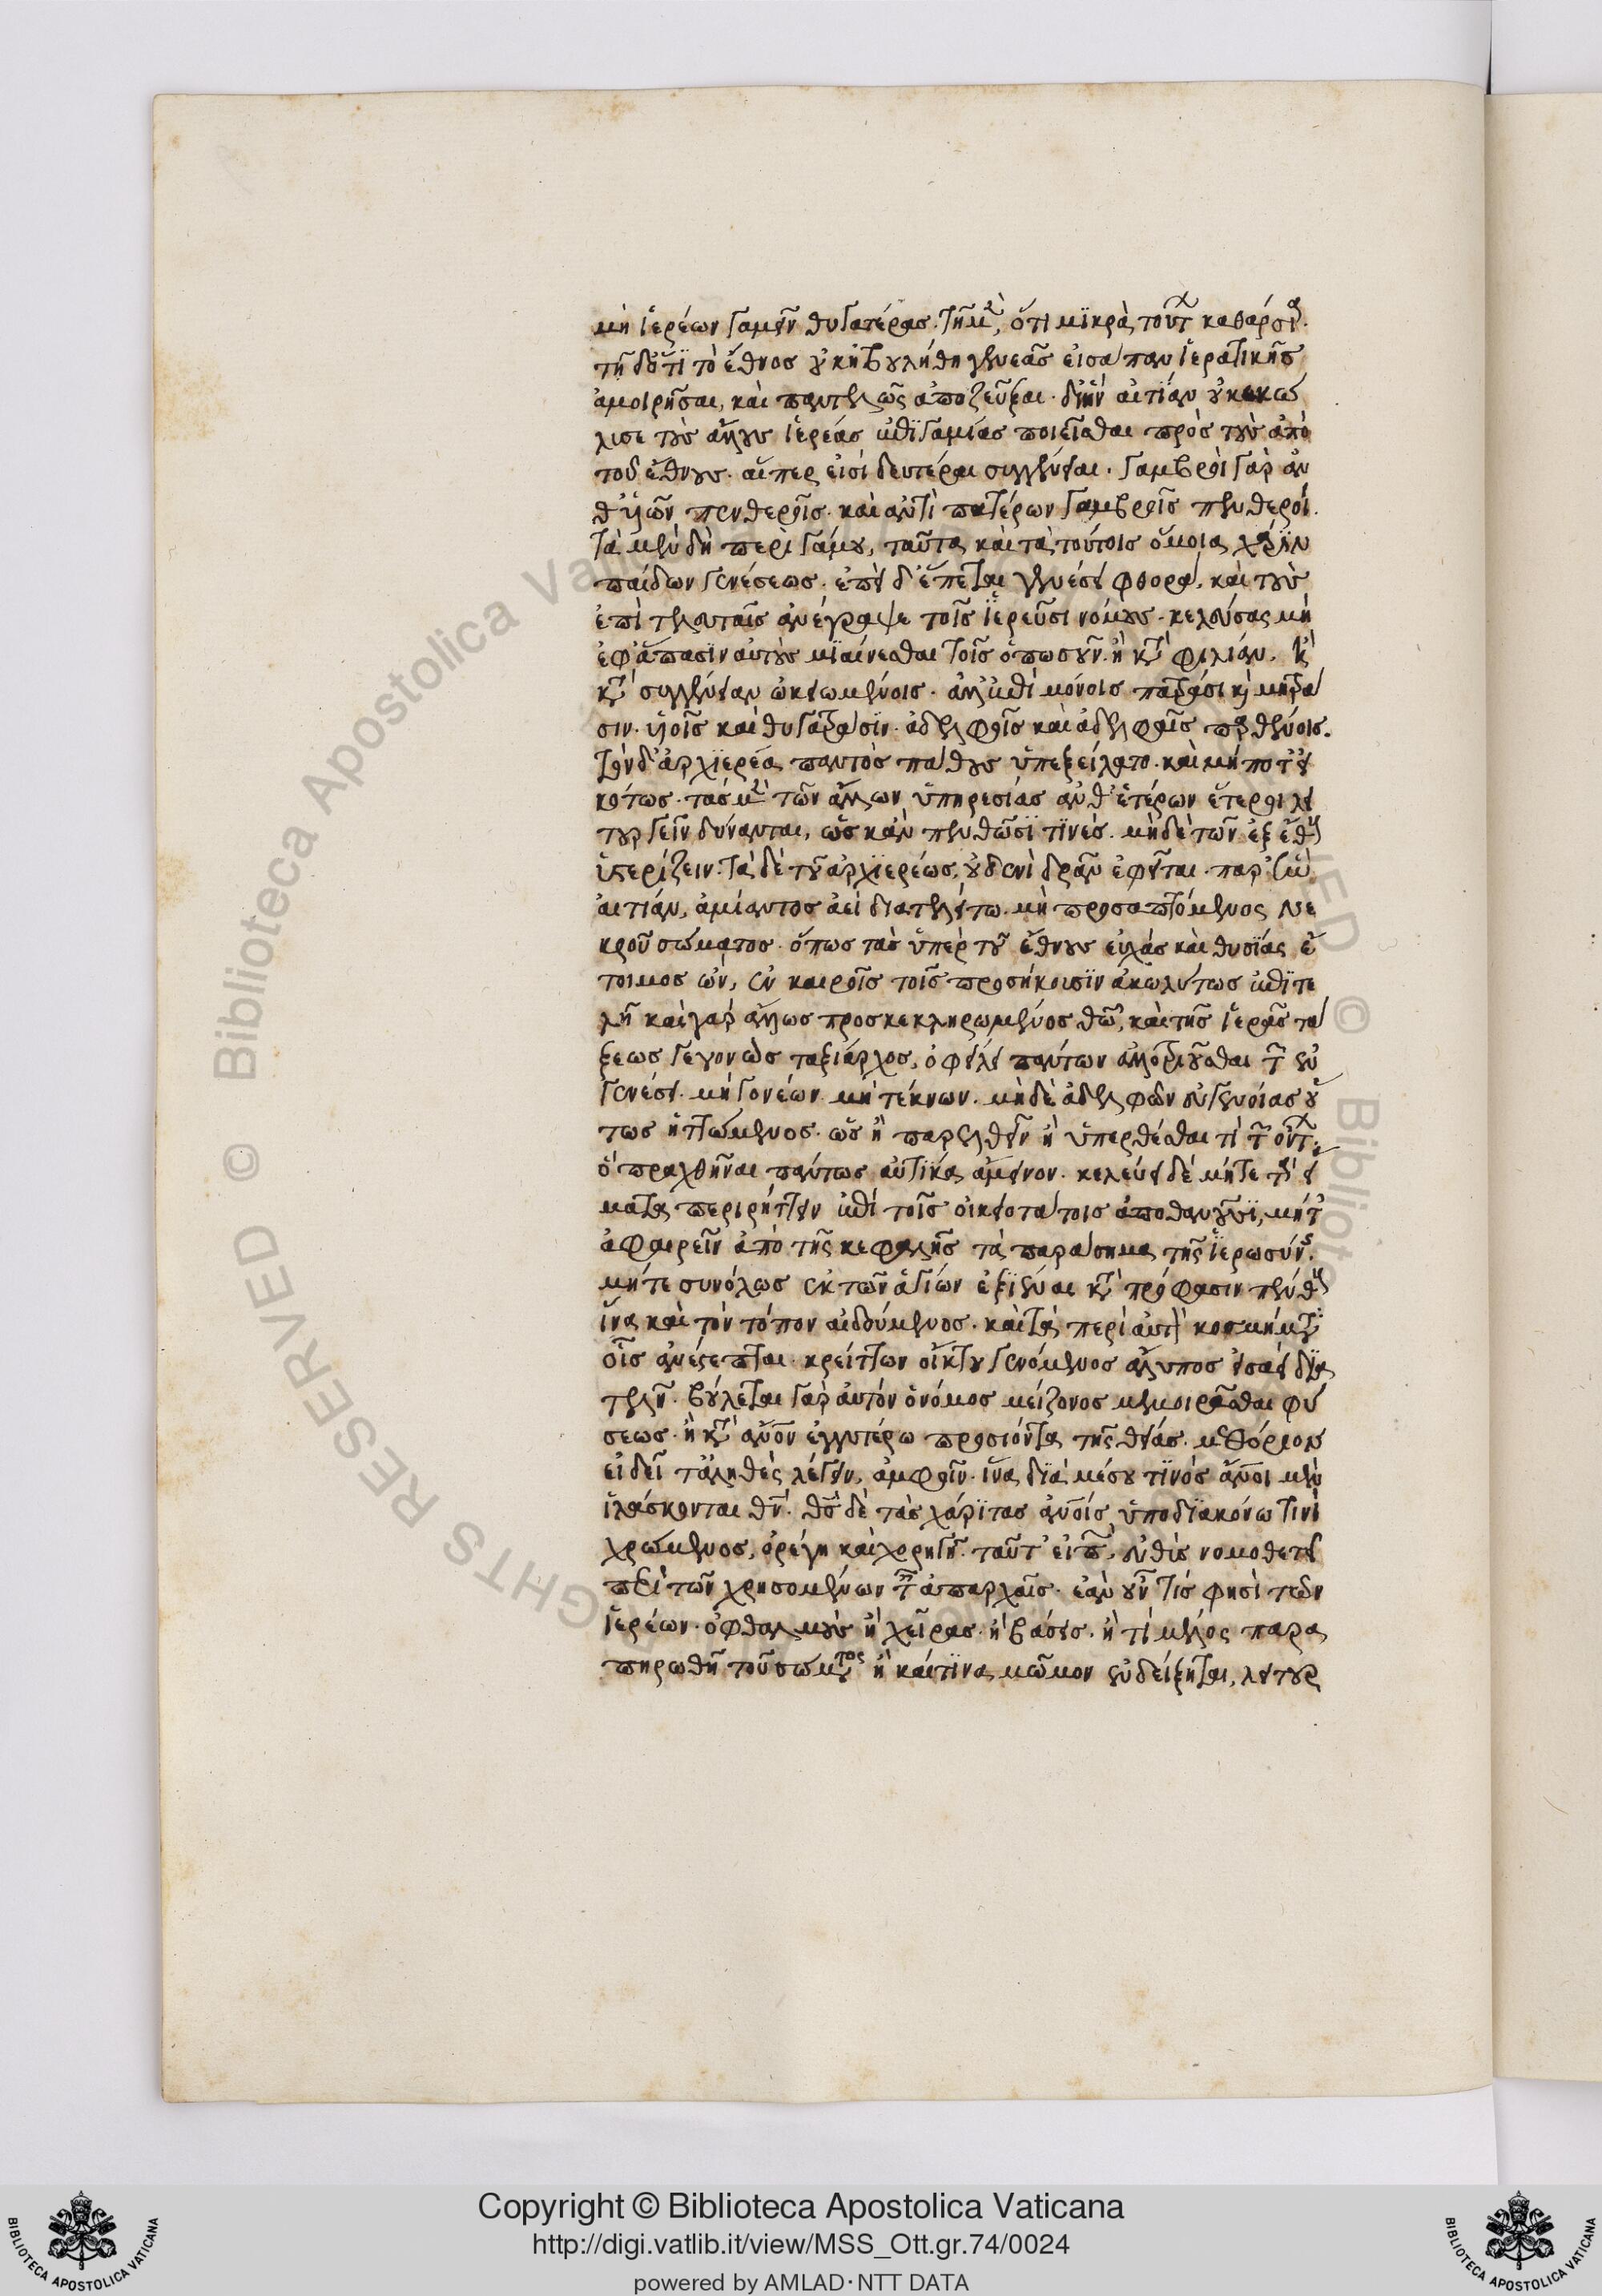 μὴ ἱερέων γαμεῖν θυγατέρας. τῇ μὲν, ὅτι μϊκρὰ τούτων καθάρσια.
τῇ δ' ὅτϊ τὸ ἔθνος οὐκ ἠβουλήθη γενεᾶς εἰσάπαν ἱερατικῆς
ἀμοιρῆσαι, καὶ παντελῶς ἀποζεῦξαι. δι' ἣν αἰτΐαν οὐκ ἐκώ
λισε τοὺς ἄλλους ἱερέας ἐπϊγαμίας ποιεῖσθαι πρὸς τοὺς ἀπὸ
τοῦ ἔθνους. αἵπερ εἰσὶ δευτέραι συγγένειαι. γαμβροὶ γὰρ ἀν
θ' υἱῶν πενθεροῖς. καὶ ἀντὶ πατέρων γαμβροῖς πενθεροί.
τὰ μὲν δὴ περὶ γάμου, ταῦτα καὶ τὰ τούτοις ὅμοια χάρϊν
παίδων γενέσεως. ἐπεὶ δ' ἕπεται γενέσει φθορά, καὶ τοὺς
ἐπὶ τελευταῖς ἀνέγραψε τοῖς ἱερεῦσι νόμους. κελεύσας μὴ
ἐφ' ἅπασϊν αὐτοὺς μϊαίνεσθαι τοῖς ὁπωσοῦν. ἢ κατὰ φιλίαν. ἢ
κατὰ συγγένειαν ὠκειωμένοις. ἀλλ' ἐπὶ μόνοις πατράσι καὶ μητρά
σιν. υἱοῖς καὶ θυγατράσϊν. ἀδελφοῖς καὶ ἀδελφαῖς παρθένοις.
τὸν δ' ἀρχϊερέα παντὸς πάθους ὑπεξείλατο. καὶ μή ποτ' εἰ
κότως. τὰς μὲν τῶν ἄλλων ὑπηρεσίας ἀνθ' ἑτέρων ἕτεροι λει
τουργεῖν δύνανται, ὡς κἂν πενθῶσϊ τϊνὲς. μηδὲ τῶν ἐξ ἔθους
ὑστερίζειν. τὰ δὲ τοῦ ἀρχϊερέως, οὐδενὶ δρᾶν ἐφεῖται. παρ' ἣν
αἰτιάν, ἀμίαντος ἀεὶ διατελείτω. μὴ προσαπτόμενος νε
κροῦ σώματος. ὅπως τὰς ὑπὲρ τοῦ ἔθνους εὐχὰς καὶ θυσΐας ἕ
τοιμος ὢν, ἐν καιροῖς τοῖς προσήκουσϊν ἀκωλύτως ἐπϊτε
λῇ καὶ γὰρ ἄλλως προσκεκληρωμένος θεῷ, καὶ τῆς ἱερᾶς τά
ξεως γεγονὼς ταξιάρχος, ὀφείλει πάντων ἀλλοτριοῦσθαι τῶν ἐν
γενέσει. μὴ γονέων. μὴ τέκνων. μηδὲ ἀδελφῶν εὐνοίας οὕ
τως ἡττώμενος. ὡς ἢ παρελθεῖν ἢ ὑπερθέσθαι τὶ τῶν ὁσίων.
ὃ πραχθῆναι πάντως αὐτϊκα ἄμεινον. κελεύει δὲ μήτε τὰ εἵ
ματα περιρήττειν ἐπὶ τοῖς οἰκειοτάτοις ἀποθανοῦσϊ, μήτ'
ἀφαιρεῖν ἀπὸ τῆς κεφαλῆς τὰ παράσημα τῆς ἱερωσύνης.
μήτε συνόλως ἐκ τῶν ἁγίων ἐξϊέναι κατὰ πρόφασιν πένθους
ἵνα καὶ τὸν τόπον αἰδούμενος. καὶ τὰ περὶ αὐτὸν κοσμήματα
οἷς ἀνέστεπται. κρείττων οἴκτου γενόμενος ἄλυπος εἰσάει δϊα
τελῇ. βούλεται γὰρ αὐτὸν ὁ νόμος μείζονος μεμοιρᾶσθαι φύ
σεως. ἢ κατὰ ἄνθρωπον ἐγγυτέρω προσιόντα τῆς θείας. μεθόριον
εἰ δεῖ τἀληθὲς λέγειν, ἀμφοῖν. ἵνα δϊὰ μέσου τϊνὸς ἄνθρωποι μὲν
ἱλάσκονται θεόν. θεὸς δὲ τὰς χάρϊτας ἀνθρώποις ὑποδϊακόνω τινὶ
χρώμενος, ὀρέγη καὶ χορηγῇ. ταῦτ' εἰπὼν, εὐθὺς νομοθετεῖ
περὶ τῶν χρησομένων ταῖς ἀπαρχαῖς. ἐὰν οὖν τίς φησὶ τῶν
ἱερέων. ὀφθαλμοὺς ἢ χεῖρας. ἢ βάσεις. ἢ τὶ μέλος παρα
πηρωθῆ τοῦ σώματος ἢ καὶ τϊνα μῶμον ἐνδείξηται, λειτουρ
Copyright © Biblioteca Apostolica Vaticana
http://digi.vatlib.it/view/MSS_Ott.gr.74/0024
powered by AMLAD·NTT DATA